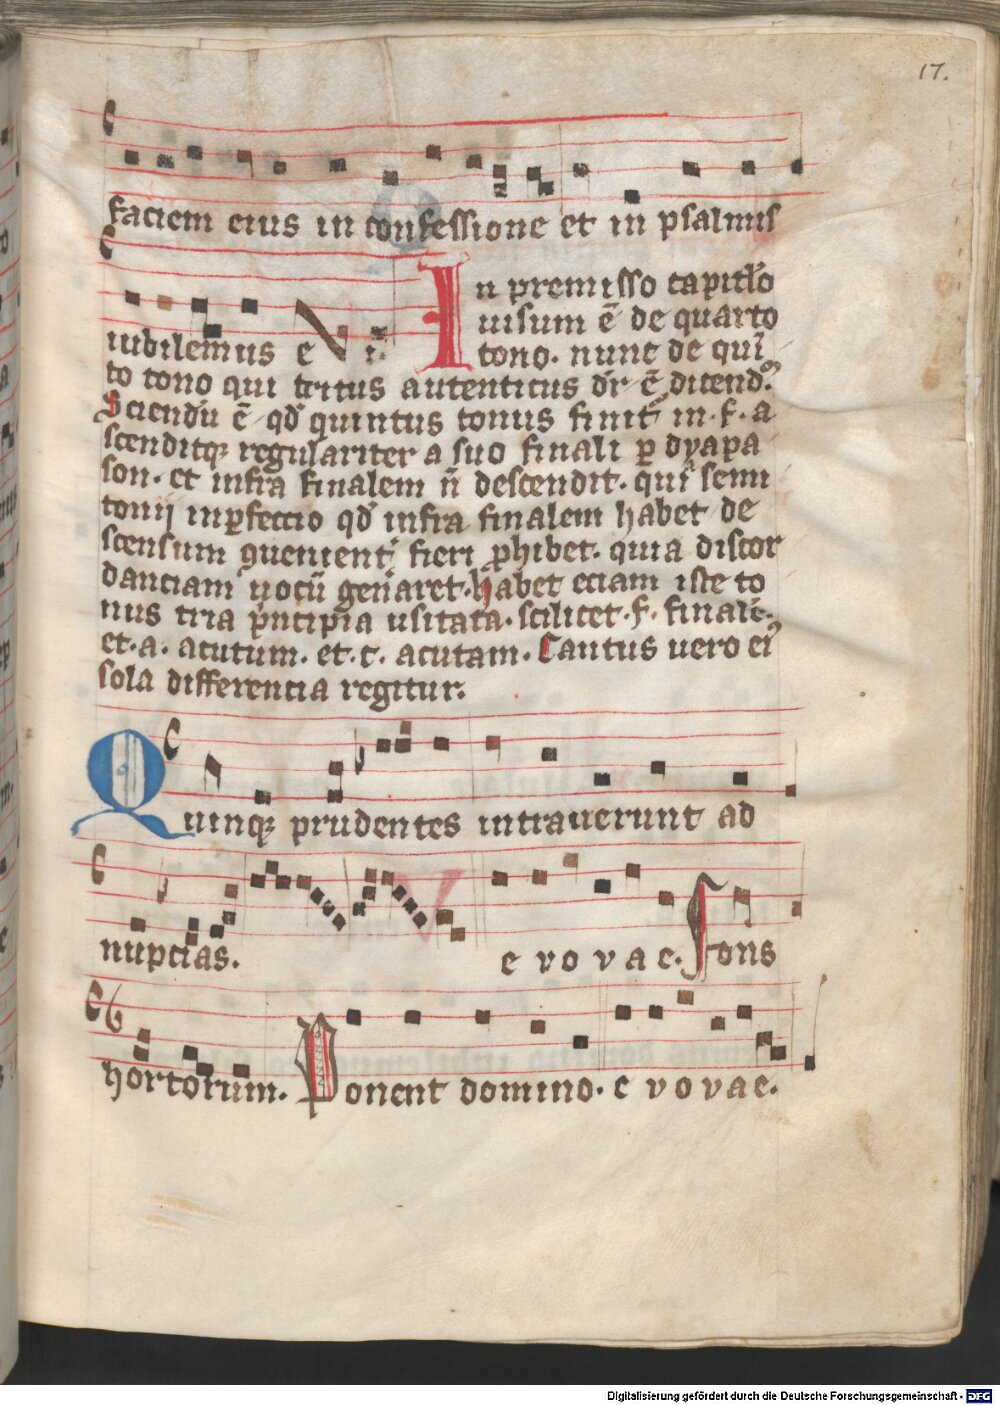 17.
faciem eius in confessione et in psalmis
In premisso capitl̄o
iubilemus ei. uisum ē de quarto
tono. nunc de quī
to tono qui tritus autenticus dr̄ ē dicend᷒
Sciendū ē qd̄ quintus tonus finit᷑ in .f. a
scenditqꝫ regulariter a suo finali ꝑ dyapa
son. et infra finalem n̄ descendit. quī semi
tonij inꝑfectio qd̄ infra finalem habet de
scensum ꝯuenient᷑ fieri ꝓhibet. quia discor
danciam uocū gen̄aret. habet eciam iste to
nus tria pⁱncipia usitata. scilicet .f. finalē.
et .a. acutum. et .c. acutam. Cantus uero ei᷒
sola differencia regitur.
Quinqꝫ prudentes intrauerunt ad
nupcias. e v o v a e. Fons
hortorum. Ponent domino. e v o v a e.
Digitalisierung gefördert durch die Deutsche Forschungsgemeinschaft - DFG